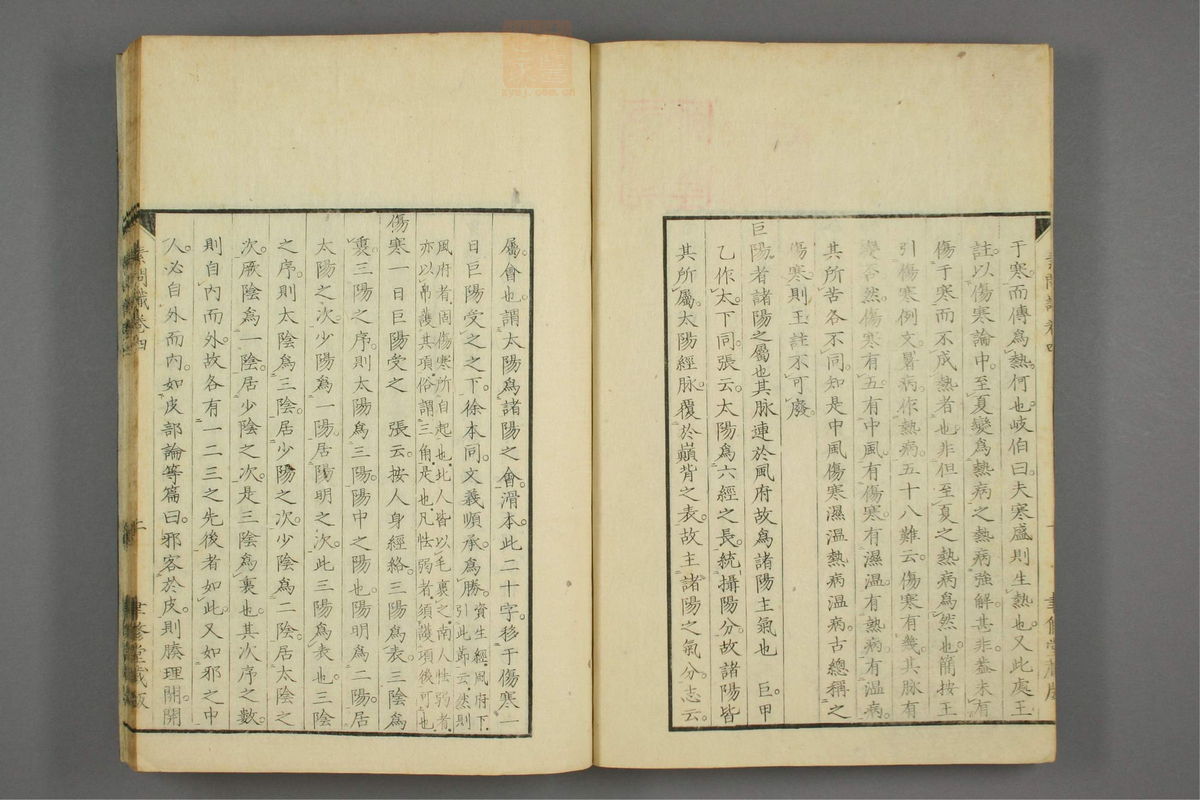 于寒而傳爲熱何也岐伯曰夫寒盛則生熱也又此處王
註以傷寒論中至夏變爲熱病之熱病強解甚非蓋未有
傷于寒而不成熱者也非但至夏之熱病爲然也簡按王
引傷寒例文暑病作熱病五十八難云傷寒有幾其脉有
變否然傷寒有五有中風有傷寒有濕温有熱病有温病
其所苦各不同知是中風傷寒濕温熱病温病古總稱之
傷寒則王註不可廢
巨陽者諸陽之屬也其脉連於風府故爲諸陽主氣也 巨甲
乙作太下同張云太陽爲六經之長統攝陽分故諸陽皆
其所屬太陽經脉覆於巓背之表故主諸陽之氣分志云
屬會也謂太陽爲諸陽之會滑本此二十字移于傷寒一
日巨陽受之之下徐本同文義順承爲勝資生經風府下
引此節云然則
風府者固傷寒所自起也北人皆以毛裹之南人怯弱者
亦以帛護其項俗謂三角是也凡怯弱者須護項後可也
傷寒一日巨陽受之 張云按人身經絡三陽爲表三陰爲
裏三陽之序則太陽爲三陽陽中之陽也陽明爲二陽居
太陽之次少陽爲一陽居陽明之次此三陽爲表也三陰
之序則太陰爲三陰居少陽之次少陰爲二陰居太陰之
次厥陰爲一陰居少陰之次是三陰爲裏也其次序之數
則自内而外故各有一二三之先後者如此又如邪之中
人必自外而内如皮部論等篇曰邪客於皮則腠理開開
素問識卷四
聿修堂藏版